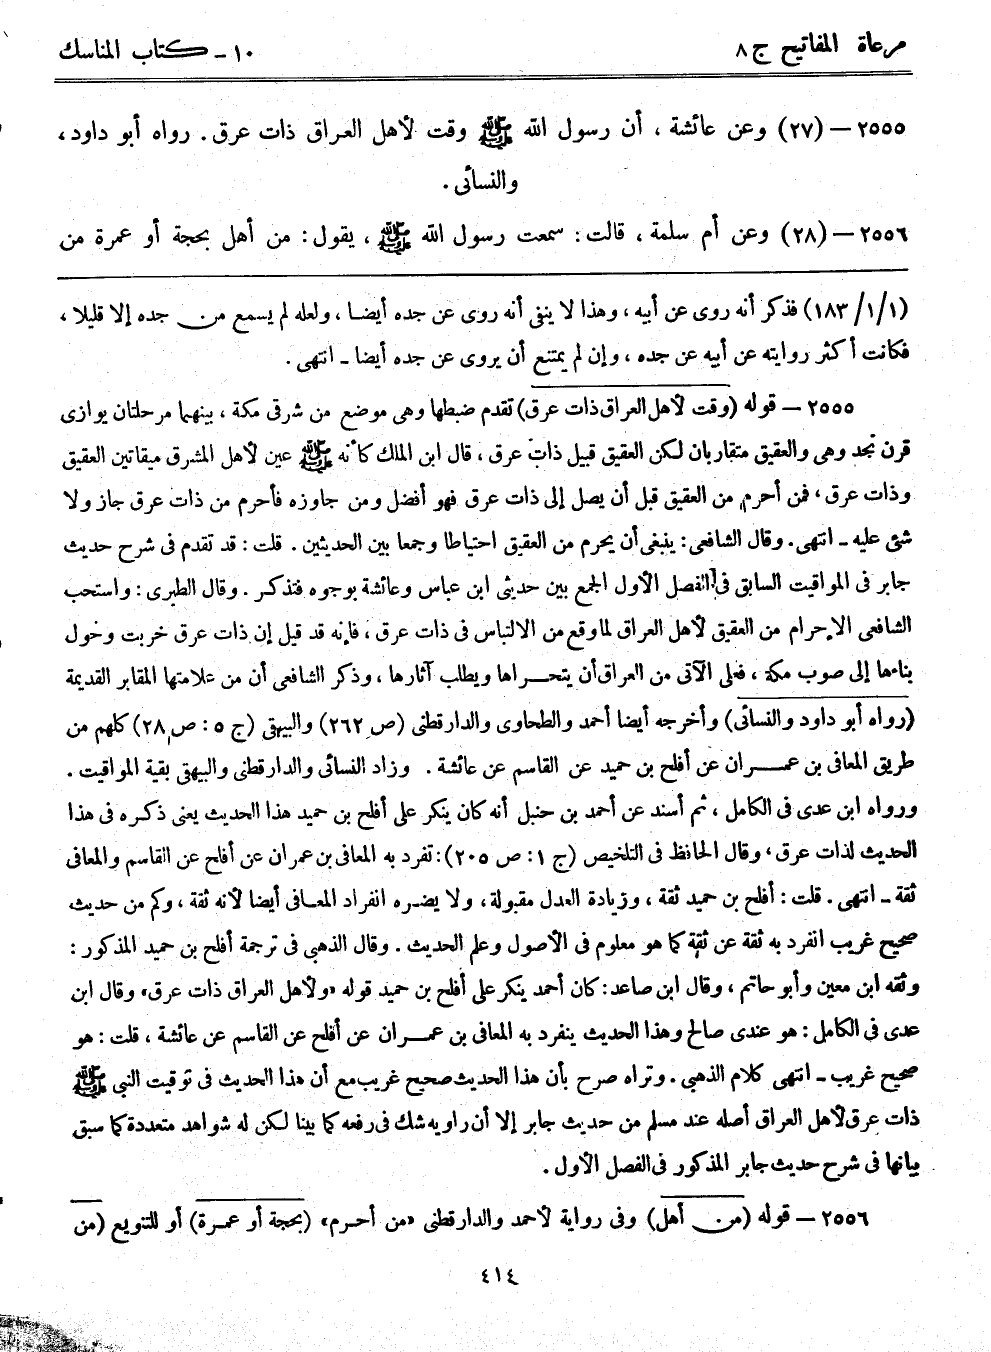 مرعاة المفاتيح ج ٨
١٠ ـ كتاب المناسك
٢٥٥٥ – (٢٧) وعن عائشة ، أن رسول الله ﷺ وقت لأهل العراق ذات عرق . رواه أبو داود ،
والنسائى .
٢٥٥٦ – (٢٨) وعن أم سلمة ، قالت : سمعت رسول الله ﷺ ، يقول : من أهل بحجة أو عمرة من
(١/١/١٨٣) فذكر أنه روى عن أبيه ، وهذا لا ينفى أنه روى عن جده أيضا ، ولعله لم يسمع من جده إلا قليلا ،
فكانت أكثر روايته عن أبيه عن جده ، وإن لم يمتنع أن يروى عن جده أيضا ـ انتهى .
٢٥٥٥ – قوله (وقت لأهل العراق ذات عرق) تقدم ضبطها وهى موضع من شرقى مكة ، بينهما مرحلتان يوازى
قرن نجد وهى والعقيق متقاربان لكن العقيق قبيل ذات عرق ، قال ابن الملك كأنه ﷺ عين لأهل المشرق ميقاتين العقيق
وذات عرق ، فمن أحرم من العقيق قبل أن يصل إلى ذات عرق فهو أفضل ومن جاوزه فأحرم من ذات عرق جاز ولا
شئ عليه ـ انتهى . وقال الشافعى : ينبغى أن يحرم من العقيق احتياطا وجمعا بين الحديثين . قلت : قد تقدم فى شرح حديث
جابر فى المواقيت السابق فى الفصل الأول الجمع بين حديثى ابن عباس وعائشة بوجوه فتذكر . وقال الطبرى : واستحب
الشافعى الإحرام من العقيق لأهل العراق لما وقع من الالتباس فى ذات عرق ، فإنه قد قيل إن ذات عرق خربت وحول
بناءها إلى صوب مكة ، فعلى الآتى من العراق أن يتحراها ويطلب آثارها ، وذكر الشافعى أن من علامتها المقابر القديمة
(رواه أبو داود والنسائى) وأخرجه أيضا أحمد والطحاوى والدارقطنى (ص ٢٦٢) والبيهقى (ج ٥ : ص ٢٨) كلهم من
طريق المعافى بن عمران عن أفلح بن حميد عن القاسم عن عائشة . وزاد النسائى والدارقطنى والبيهقى بقية المواقيت .
ورواه ابن عدى فى الكامل ، ثم أسند عن أحمد بن حنبل أنه كان ينكر على أفلح بن حميد هذا الحديث يعنى ذكره فى هذا
الحديث لذات عرق ، وقال الحافظ فى التلخيص (ج ١ : ص ٢٠٥) : تفرد به المعافى بن عمران عن أفلح عن القاسم والمعافى
ثقة ـ انتهى . قلت : أفلح بن حميد ثقة ، وزيادة العدل مقبولة ، ولا يضره انفراد المعافى أيضا لأنه ثقة ، وكم من حديث
صحيح غريب انفرد به ثقة عن ثقة كما هو معلوم فى الأصول وعلم الحديث . وقال الذهبى فى ترجمة أفلح بن حميد المذكور :
وثقه ابن معين وأبو حاتم ، وقال ابن صاعد : كان أحمد ينكر على أفلح بن حميد قوله «ولأهل العراق ذات عرق» وقال ابن
عدى فى الكامل : هو عندى صالح وهذا الحديث ينفرد به المعافى بن عمران عن أفلح عن القاسم عن عائشة ، قلت : هو
صحيح غريب ـ انتهى كلام الذهبى . وتراه صرح بأن هذا الحديث صحيح غريب مع أن هذا الحديث فى توقيت النبى ﷺ
ذات عرق لأهل العراق أصله عند مسلم من حديث جابر إلا أن راويه شك فى رفعه كما بينا لكن له شواهد متعددة كما سبق
بيانها فى شرح حديث جابر المذكور فى الفصل الأول .
٢٥٥٦ – قوله (من أهل) وفى رواية لأحمد والدارقطنى «من أحرم» (بحجة أو عمرة) أو للتنويع (من
٤١٤